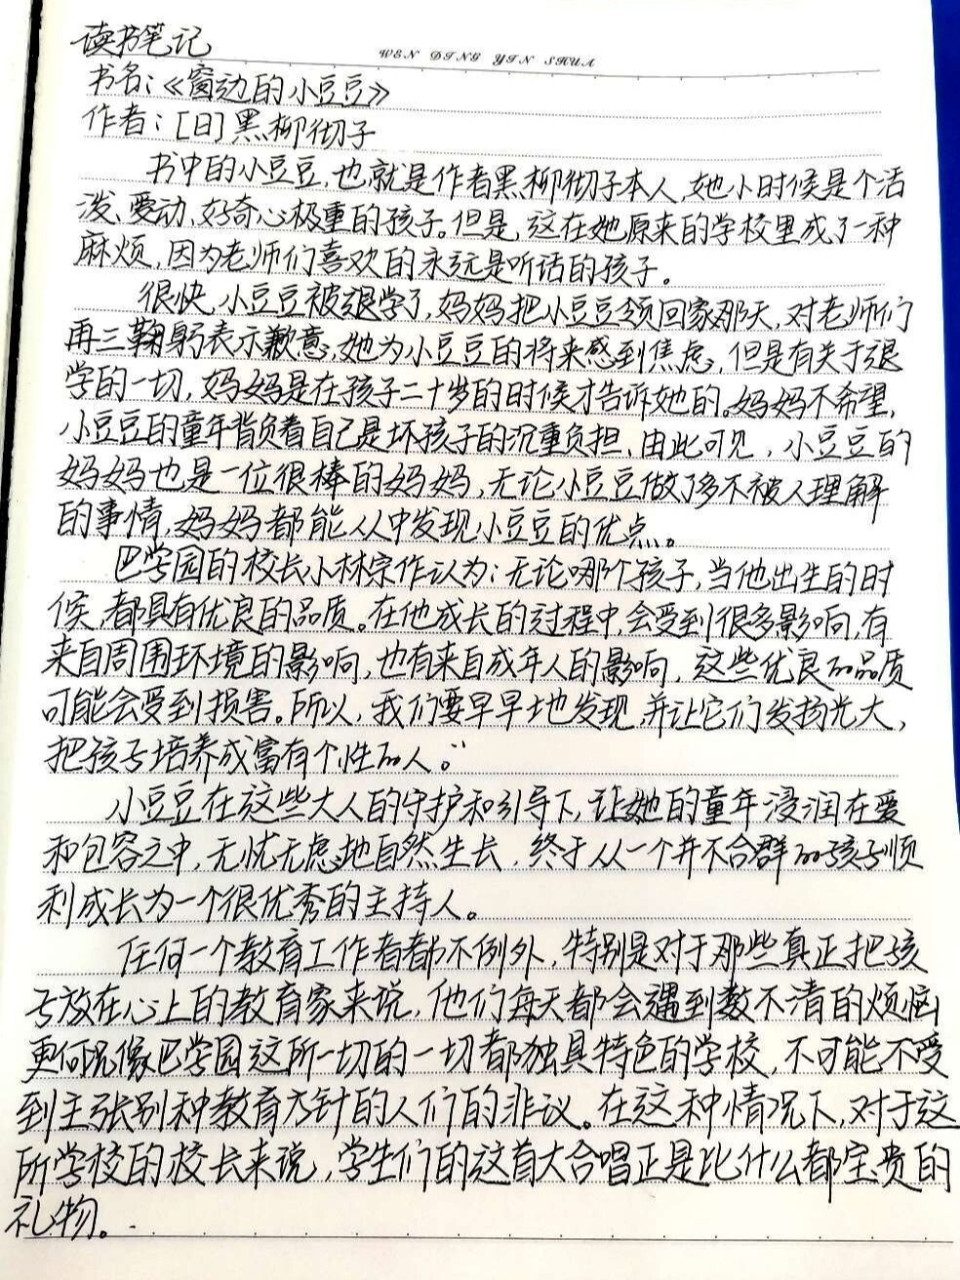 读书笔记
WEN DING YIN SHUA
书名:《窗边的小豆豆》
作者:[日]黑柳彻子
书中的小豆豆,也就是作者黑柳彻子本人,她小时候是个活
泼、爱动、好奇心极重的孩子。但是,这在她原来的学校里成了一种
麻烦,因为老师们喜欢的永远是听话的孩子。
很快,小豆豆被退学了,妈妈把小豆豆领回家那天,对老师们
再三鞠躬表示歉意,她为小豆豆的将来感到焦虑,但是有关于退
学的一切,妈妈是在孩子二十岁的时候才告诉她的。妈妈不希望,
小豆豆的童年背负着自己是坏孩子的沉重负担,由此可见,小豆豆的
妈妈也是一位很棒的妈妈,无论小豆豆做了多不被人理解
的事情,妈妈都能从中发现小豆豆的优点。
巴学园的校长小林宗作认为:无论哪个孩子,当他出生的时
候,都具有优良的品质。在他成长的过程中,会受到很多影响,有
来自周围环境的影响,也有来自成年人的影响,这些优良的品质
可能会受到损害。所以,我们要早早地发现,并让它们发扬光大,
把孩子培养成富有个性的人。”
小豆豆在这些大人的守护和引导下,让她的童年浸润在爱
和包容之中,无忧无虑地自然生长,终于从一个并不合群的孩子顺
利成长为一个很优秀的主持人。
任何一个教育工作者都不例外,特别是对于那些真正把孩
子放在心上的教育家来说,他们每天都会遇到数不清的烦恼
更何况像巴学园这所一切的一切都独具特色的学校,不可能不受
到主张别种教育方针的人们的非议。在这种情况下,对于这
所学校的校长来说,学生们的这首大合唱正是比什么都宝贵的
礼物。